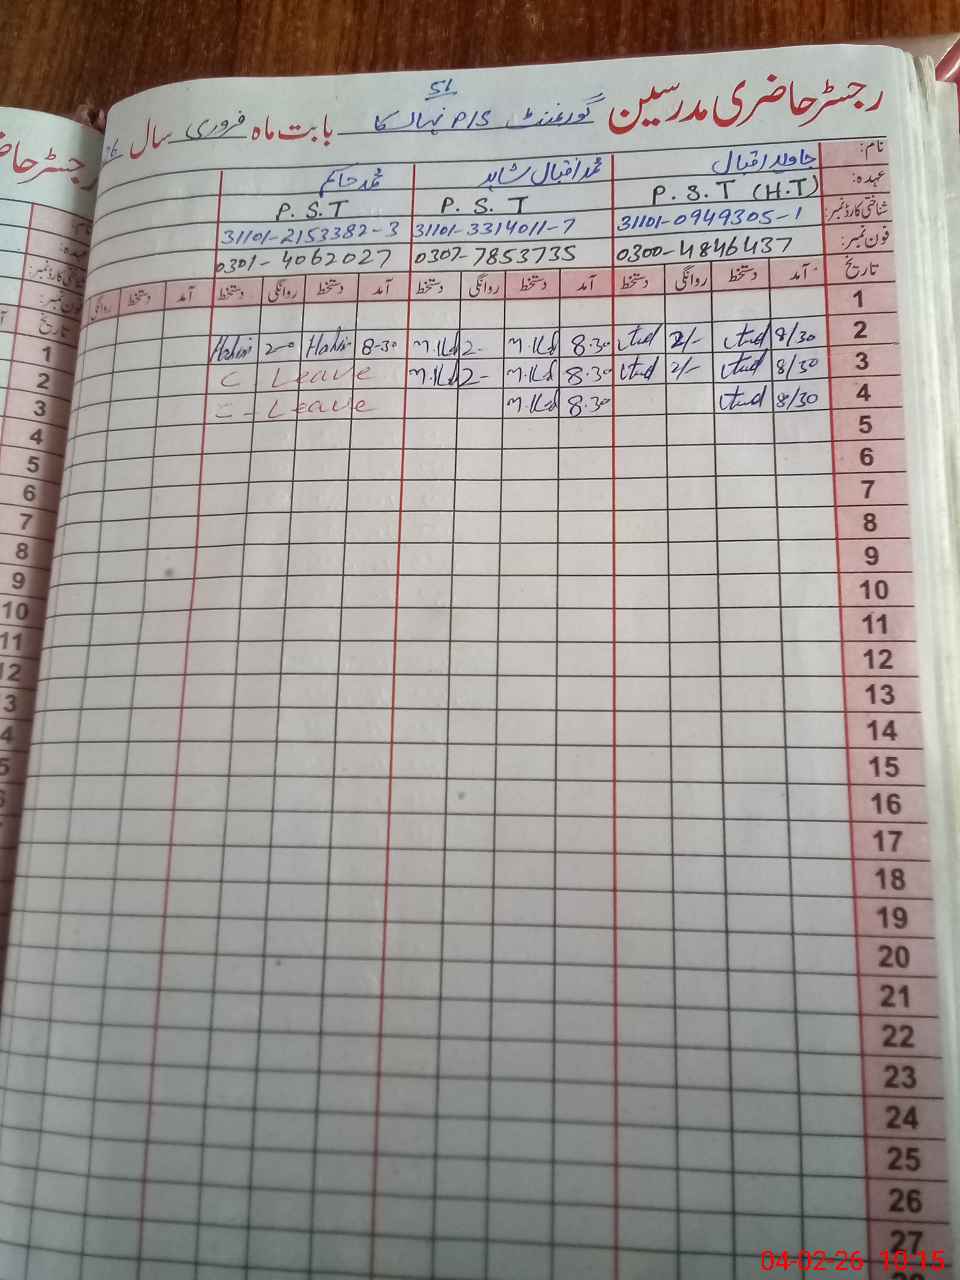 51
رجسٹر حاضری مدرسین گورنمنٹ P/S نہالکا بابت ماہ فروری سال 26
نام: جاوید اقبال محمد اقبال شاہد محمد حاکم
عہدہ: P.S.T (H.T) P.S.T P.S.T
شناختی کارڈ نمبر: 31101-0949305-1 31101-3314011-7 31101-2153382-3
فون نمبر: 0300-4846437 0307-7853735 0301-4062027
تاریخ آمد دستخط روانگی دستخط آمد دستخط روانگی دستخط آمد دستخط روانگی دستخط آمد دستخط روانگی
1
2 8/30 2/- 8.30 M.Kd 2- M.Kd 8-30 2-0
3 8/30 2/- 8.30 M.Kd 2- M.Kd C Leave
4 8/30 8.30 M.Kd C-Leave
5
6
7
8
9
10
11
12
13
14
15
16
17
18
19
20
21
22
23
24
25
26
27
رجسٹر
تاریخ
1
2
3
4
5
6
7
8
9
10
11
12
04-02-26 10:15